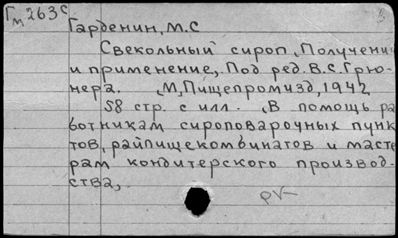 Гм 263с
Гарденин, М.С
Свекольный сироп, Получение
и применение,. Под ред. В.С. Грю-
нера. М, Пищепромизд, 1942
58 стр. с илл. В помощь ра
ботникам сироповарочных пунк
тов, райпищекомбинатов и масте
рам кондитерского производ-
ства,